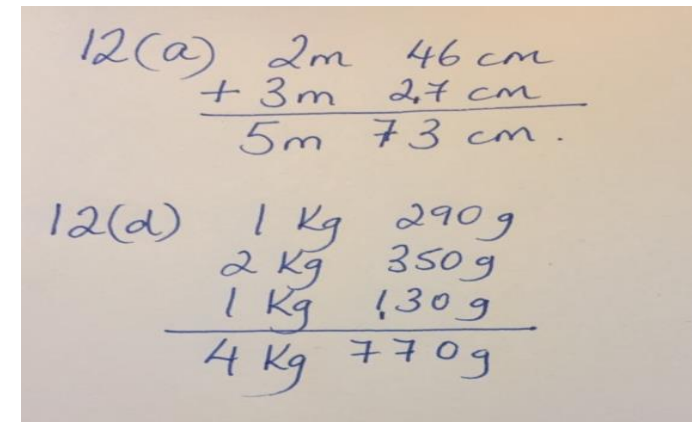 12(a) 2m 46 cm
+ 3m 27 cm
5m 73 cm.
12(d) 1 Kg 290g
2 Kg 350g
1 Kg 130g
4 Kg 770g